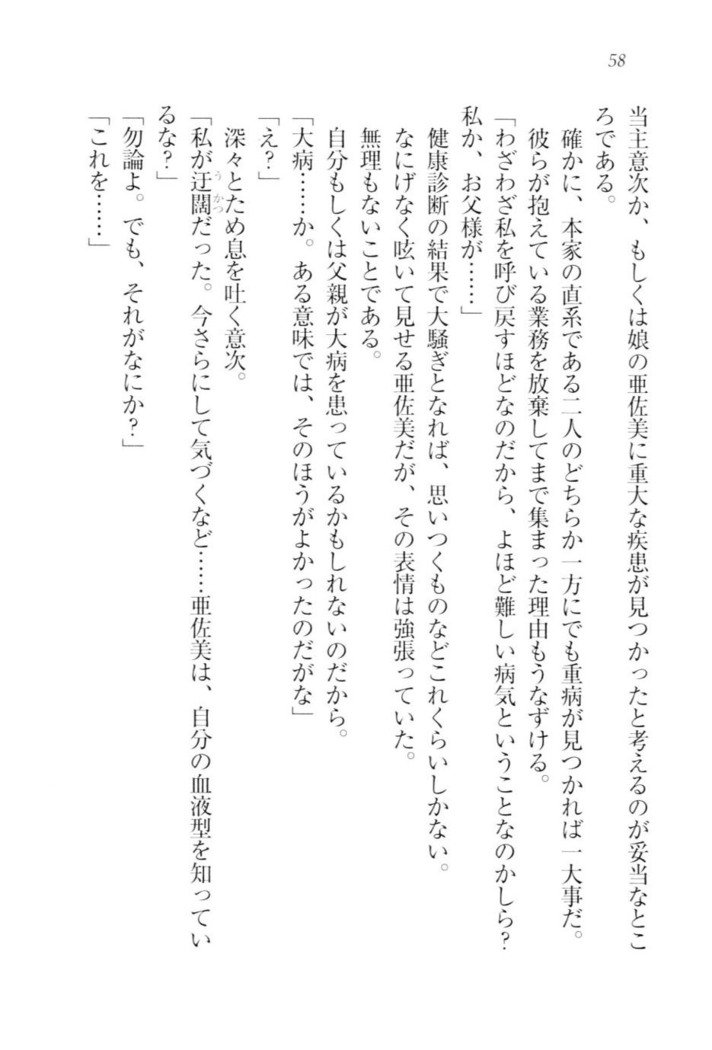 58
当主意次か、もしくは娘の亜佐美に重大な疾患が見つかったと考えるのが妥当なとこ
ろである。
確かに、本家の直系である二人のどちらか一方にでも重病が見つかれば一大事だ。
彼らが抱えている業務を放棄してまで集まった理由もうなずける。
「わざわざ私を呼び戻すほどなのだから、よほど難しい病気ということなのかしら？
私か、お父様が……」
健康診断の結果で大騒ぎとなれば、思いつくものなどこれくらいしかない。
なにげなく呟いて見せる亜佐美だが、その表情は強張っていた。
無理もないことである。
自分もしくは父親が大病を患っているかもしれないのだから。
「大病……か。ある意味では、そのほうがよかったのだがな」
「え？」
深々とため息を吐く意次。
「私が迂闊だった。今さらにして気づくなど……亜佐美は、自分の血液型を知ってい
うかつ
るな？」
「勿論よ。でも、それがなにか？」
「これを……」